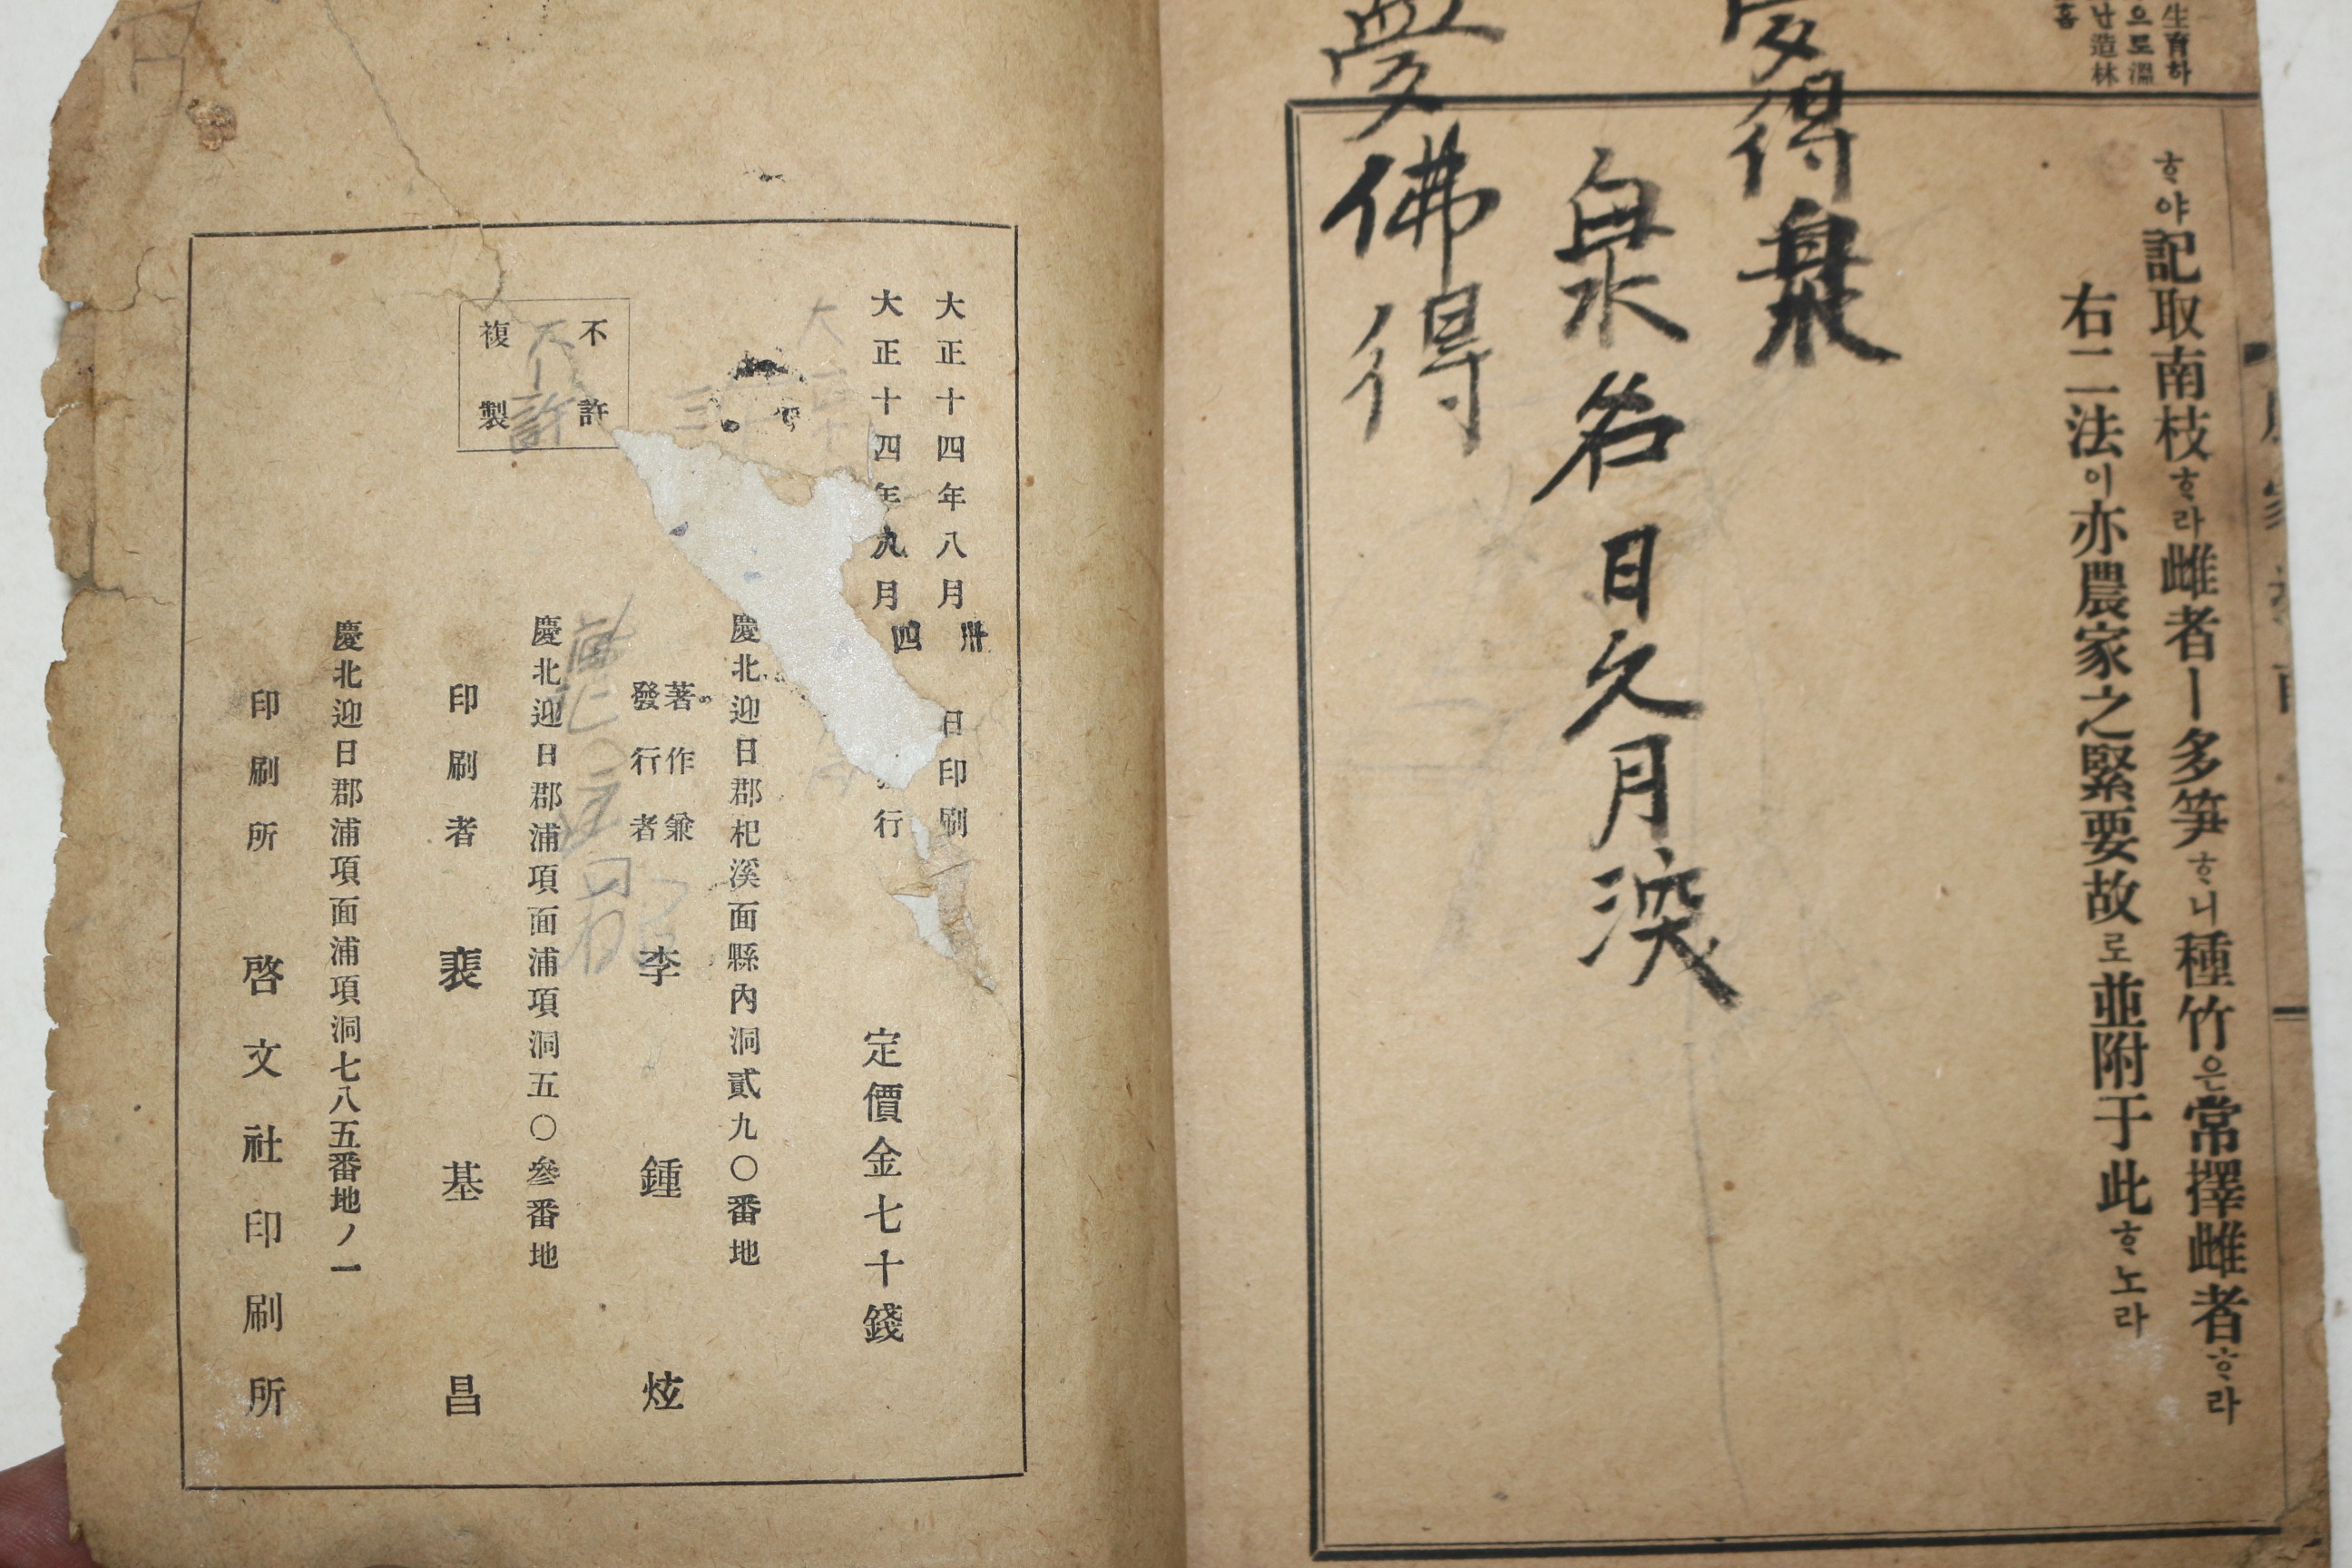 生育하
으로溫
난造林
흠
ᄒᆞ야記取南枝ᄒᆞ라雌者ㅣ多笋ᄒᆞ니種竹은常擇雌者ᄒᆞ라
右二法이亦農家之緊要故로並附于此ᄒᆞ노라
得泉
泉名日久月深
夢佛得
大正十四年八月卅日印刷
大正十四年九月四行
定價金七十錢
不許
複製
慶北迎日郡杞溪面縣內洞貳九〇番地
著作兼
發行者
李鍾炫
慶北迎日郡浦項面浦項洞五〇參番地
印刷者 裵基昌
慶北迎日郡浦項面浦項洞七八五番地ノ一
印刷所 啓文社印刷所
不許
円